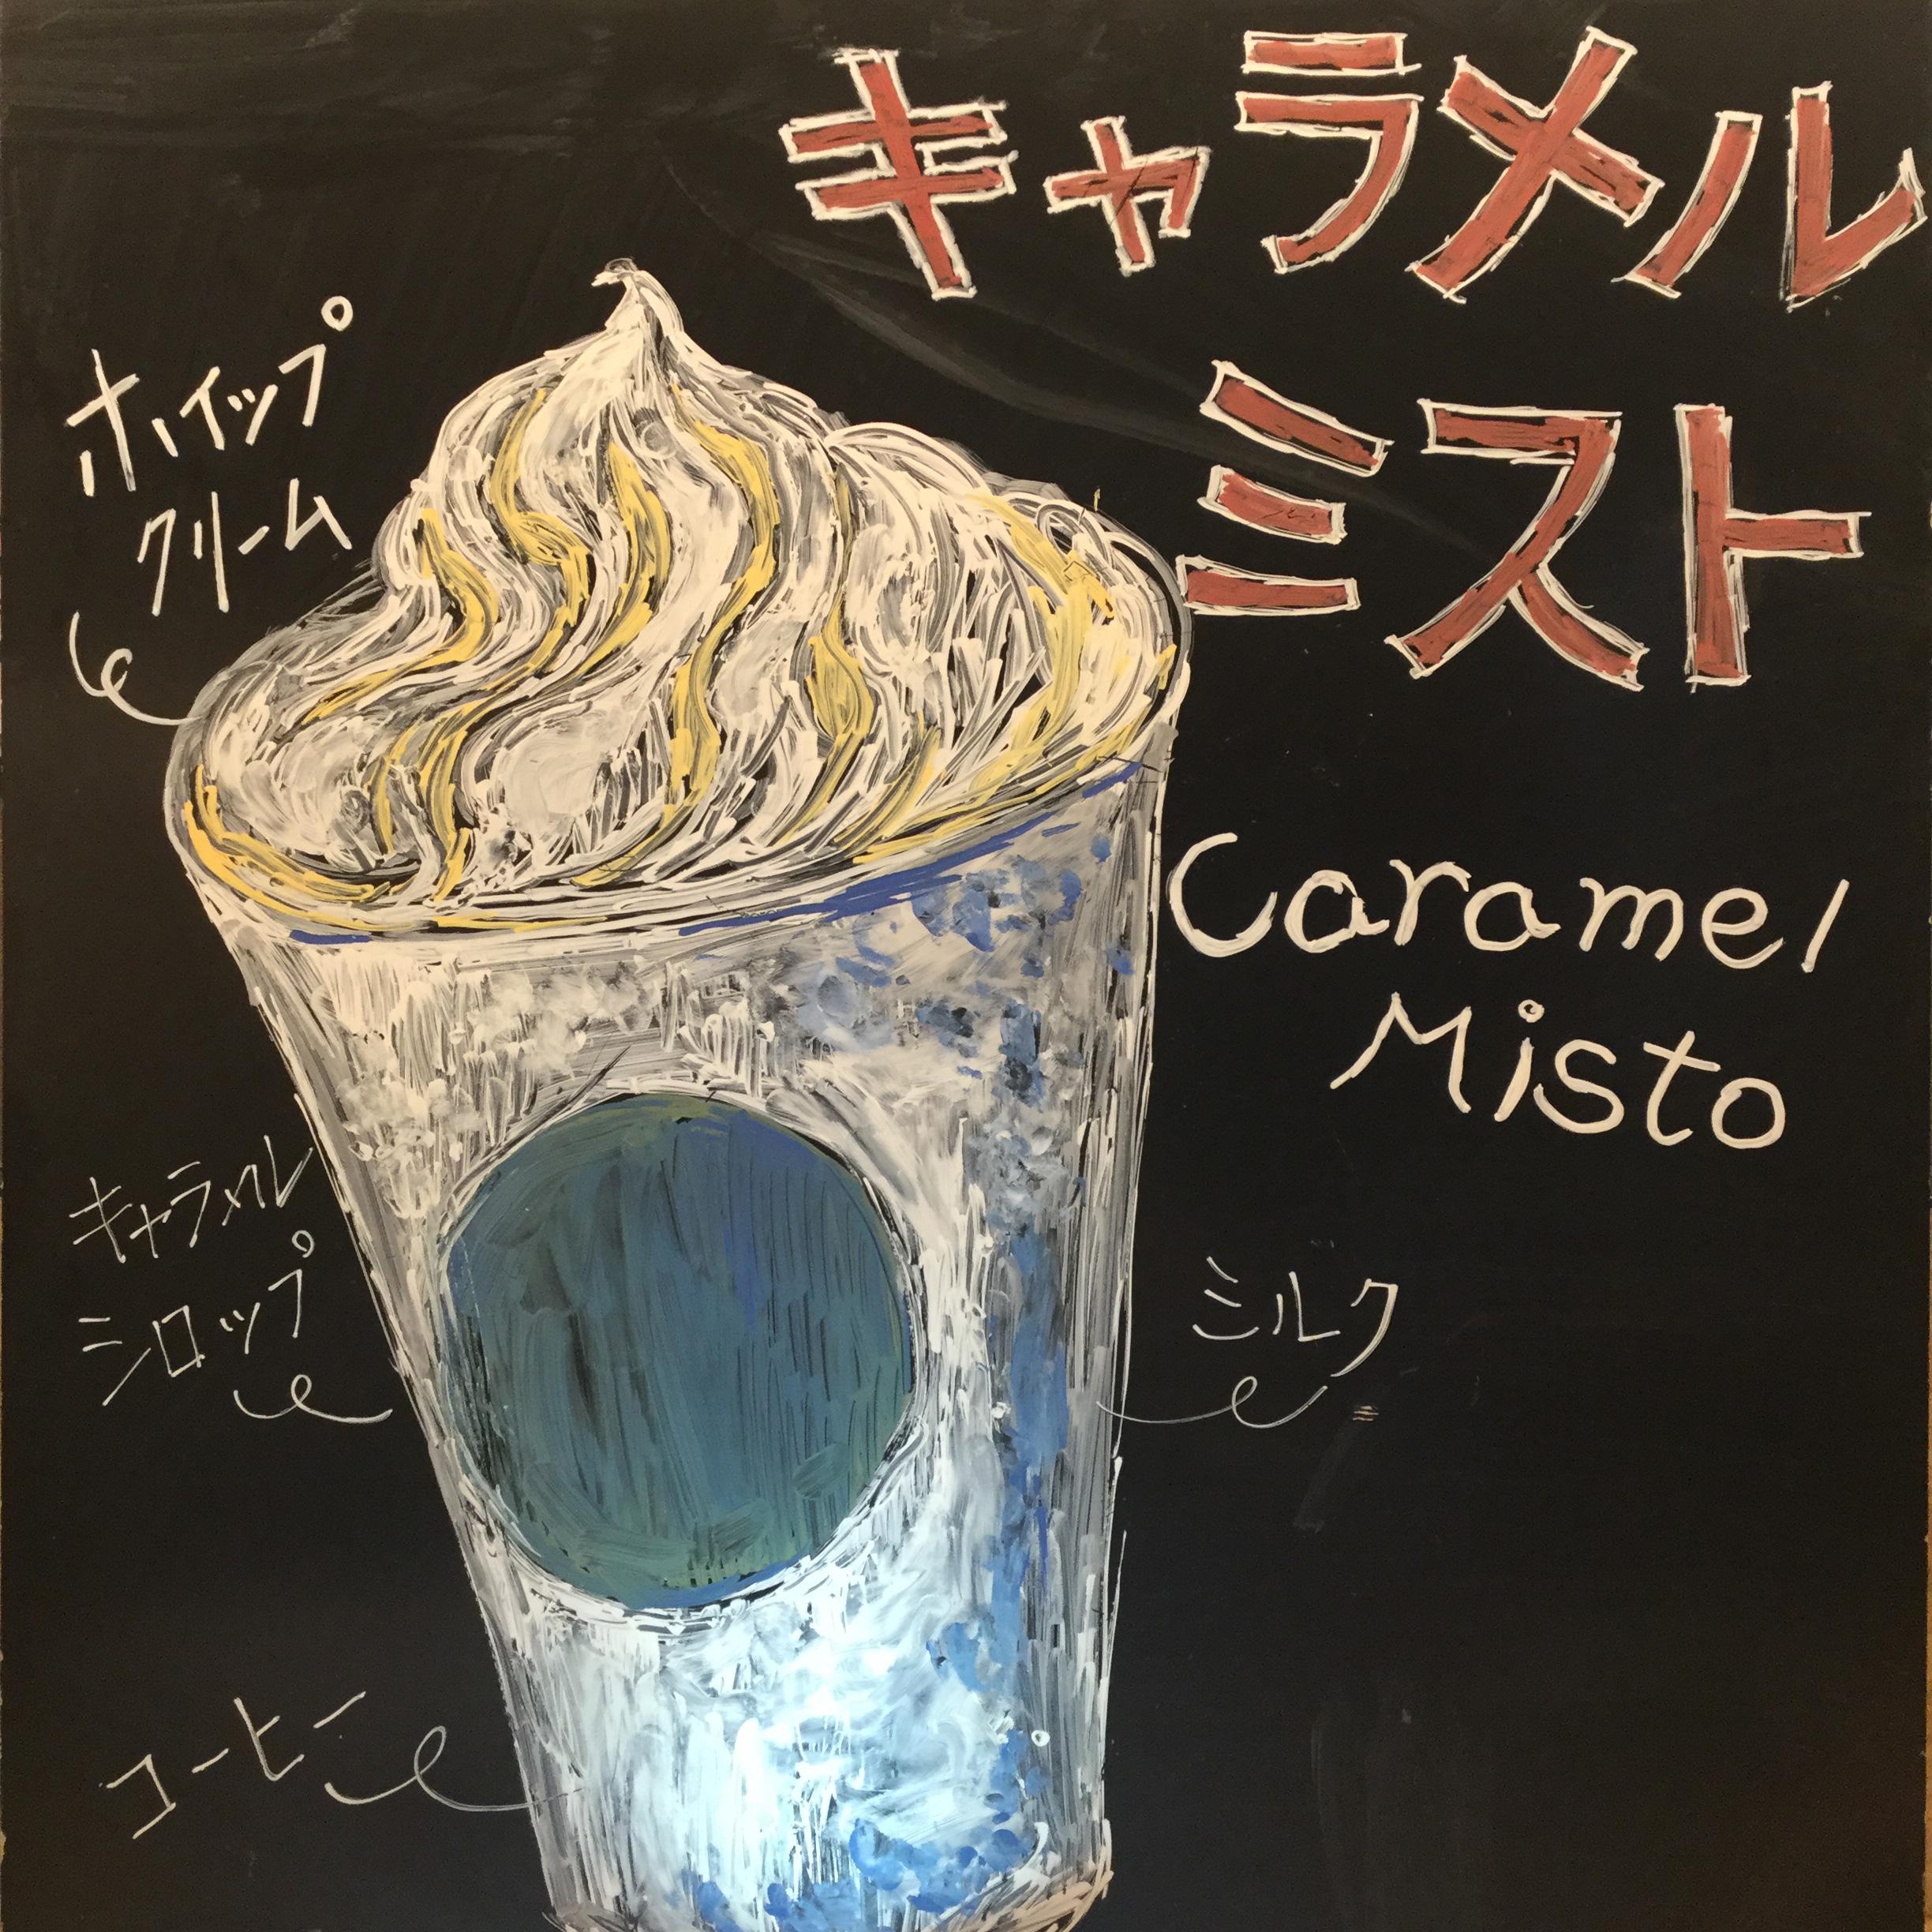 キャラメル
ミスト
ホイップ
クリーム
Caramel
Misto
キャラメル
シロップ
ミルク
コーヒー